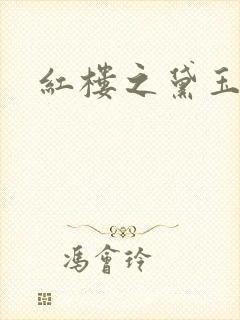 紅樓之黛玉
馮會玲